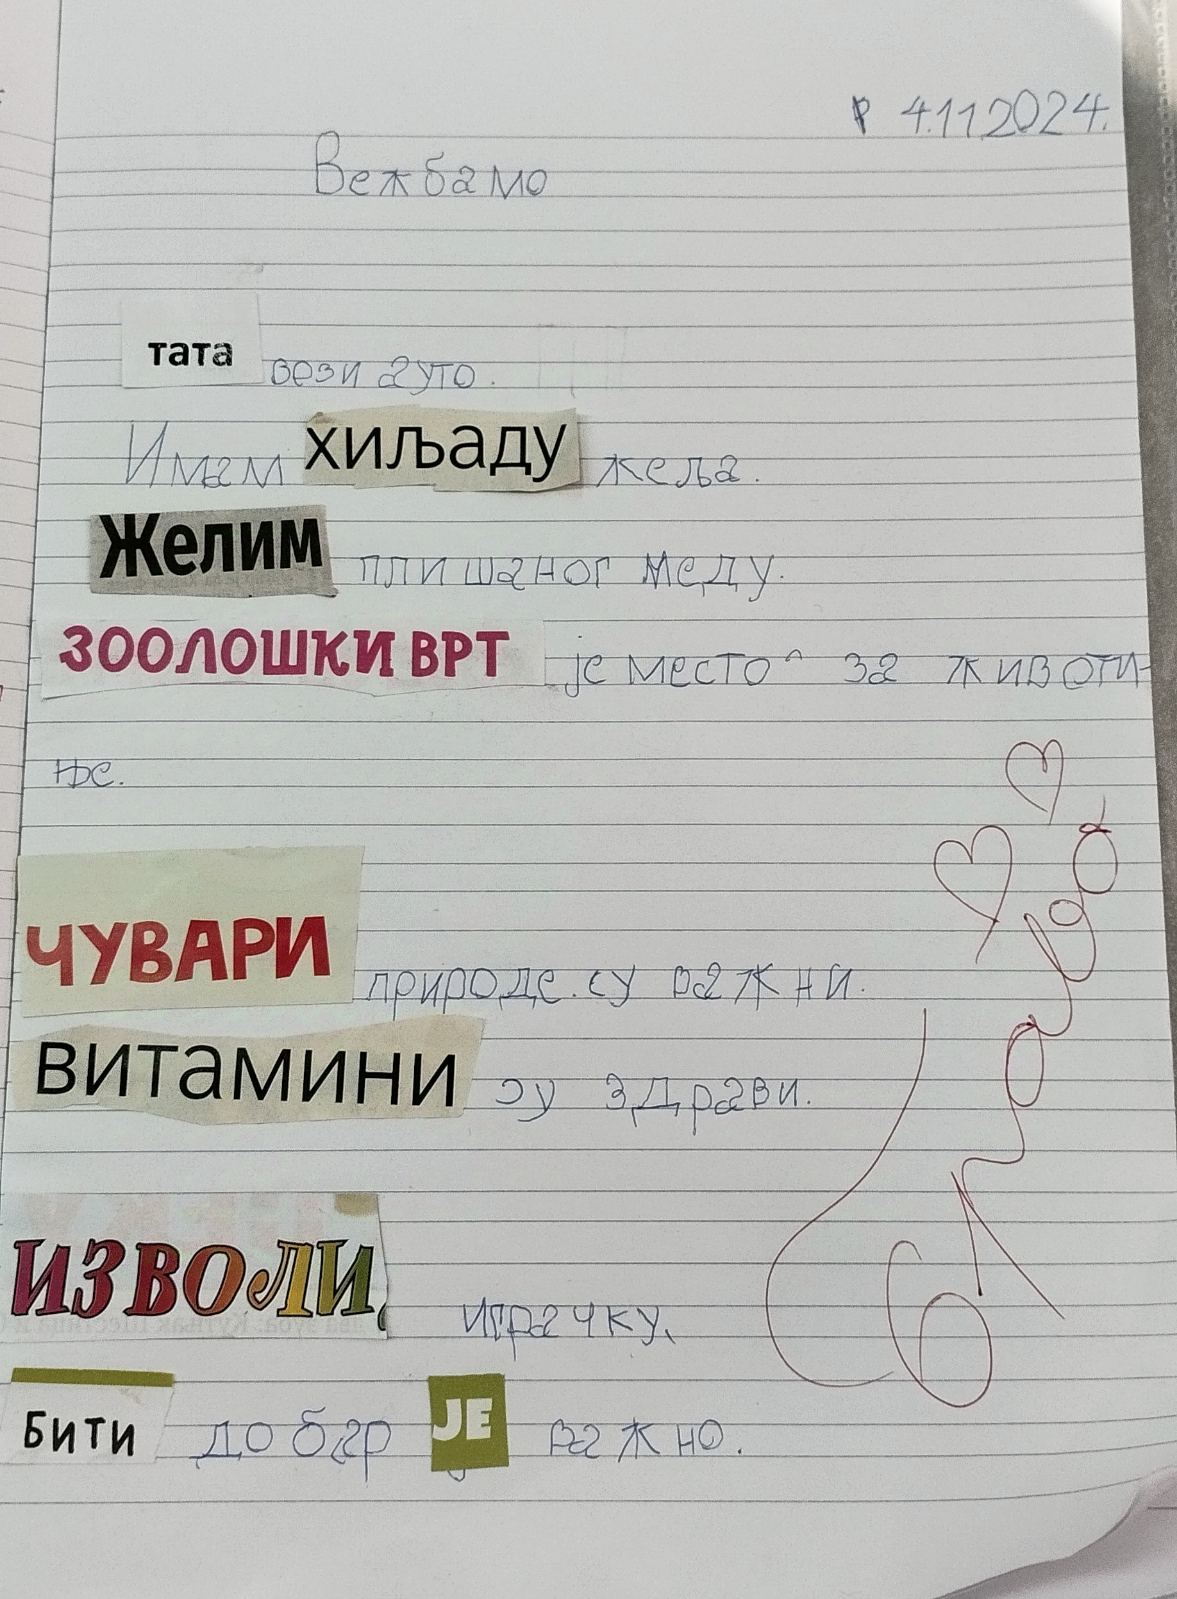 4.11.2024.
Вежбамо
тата вози ауто.
Имам хиљаду жеља.
Желим плишаног меду.
ЗООЛОШКИ ВРТ је место за животи-
ње.
ЧУВАРИ природе су важни.
ВИТАМИНИ су здрави.
ИЗВОЛИ играчку.
БИТИ добар ЈЕ важно.
Браво